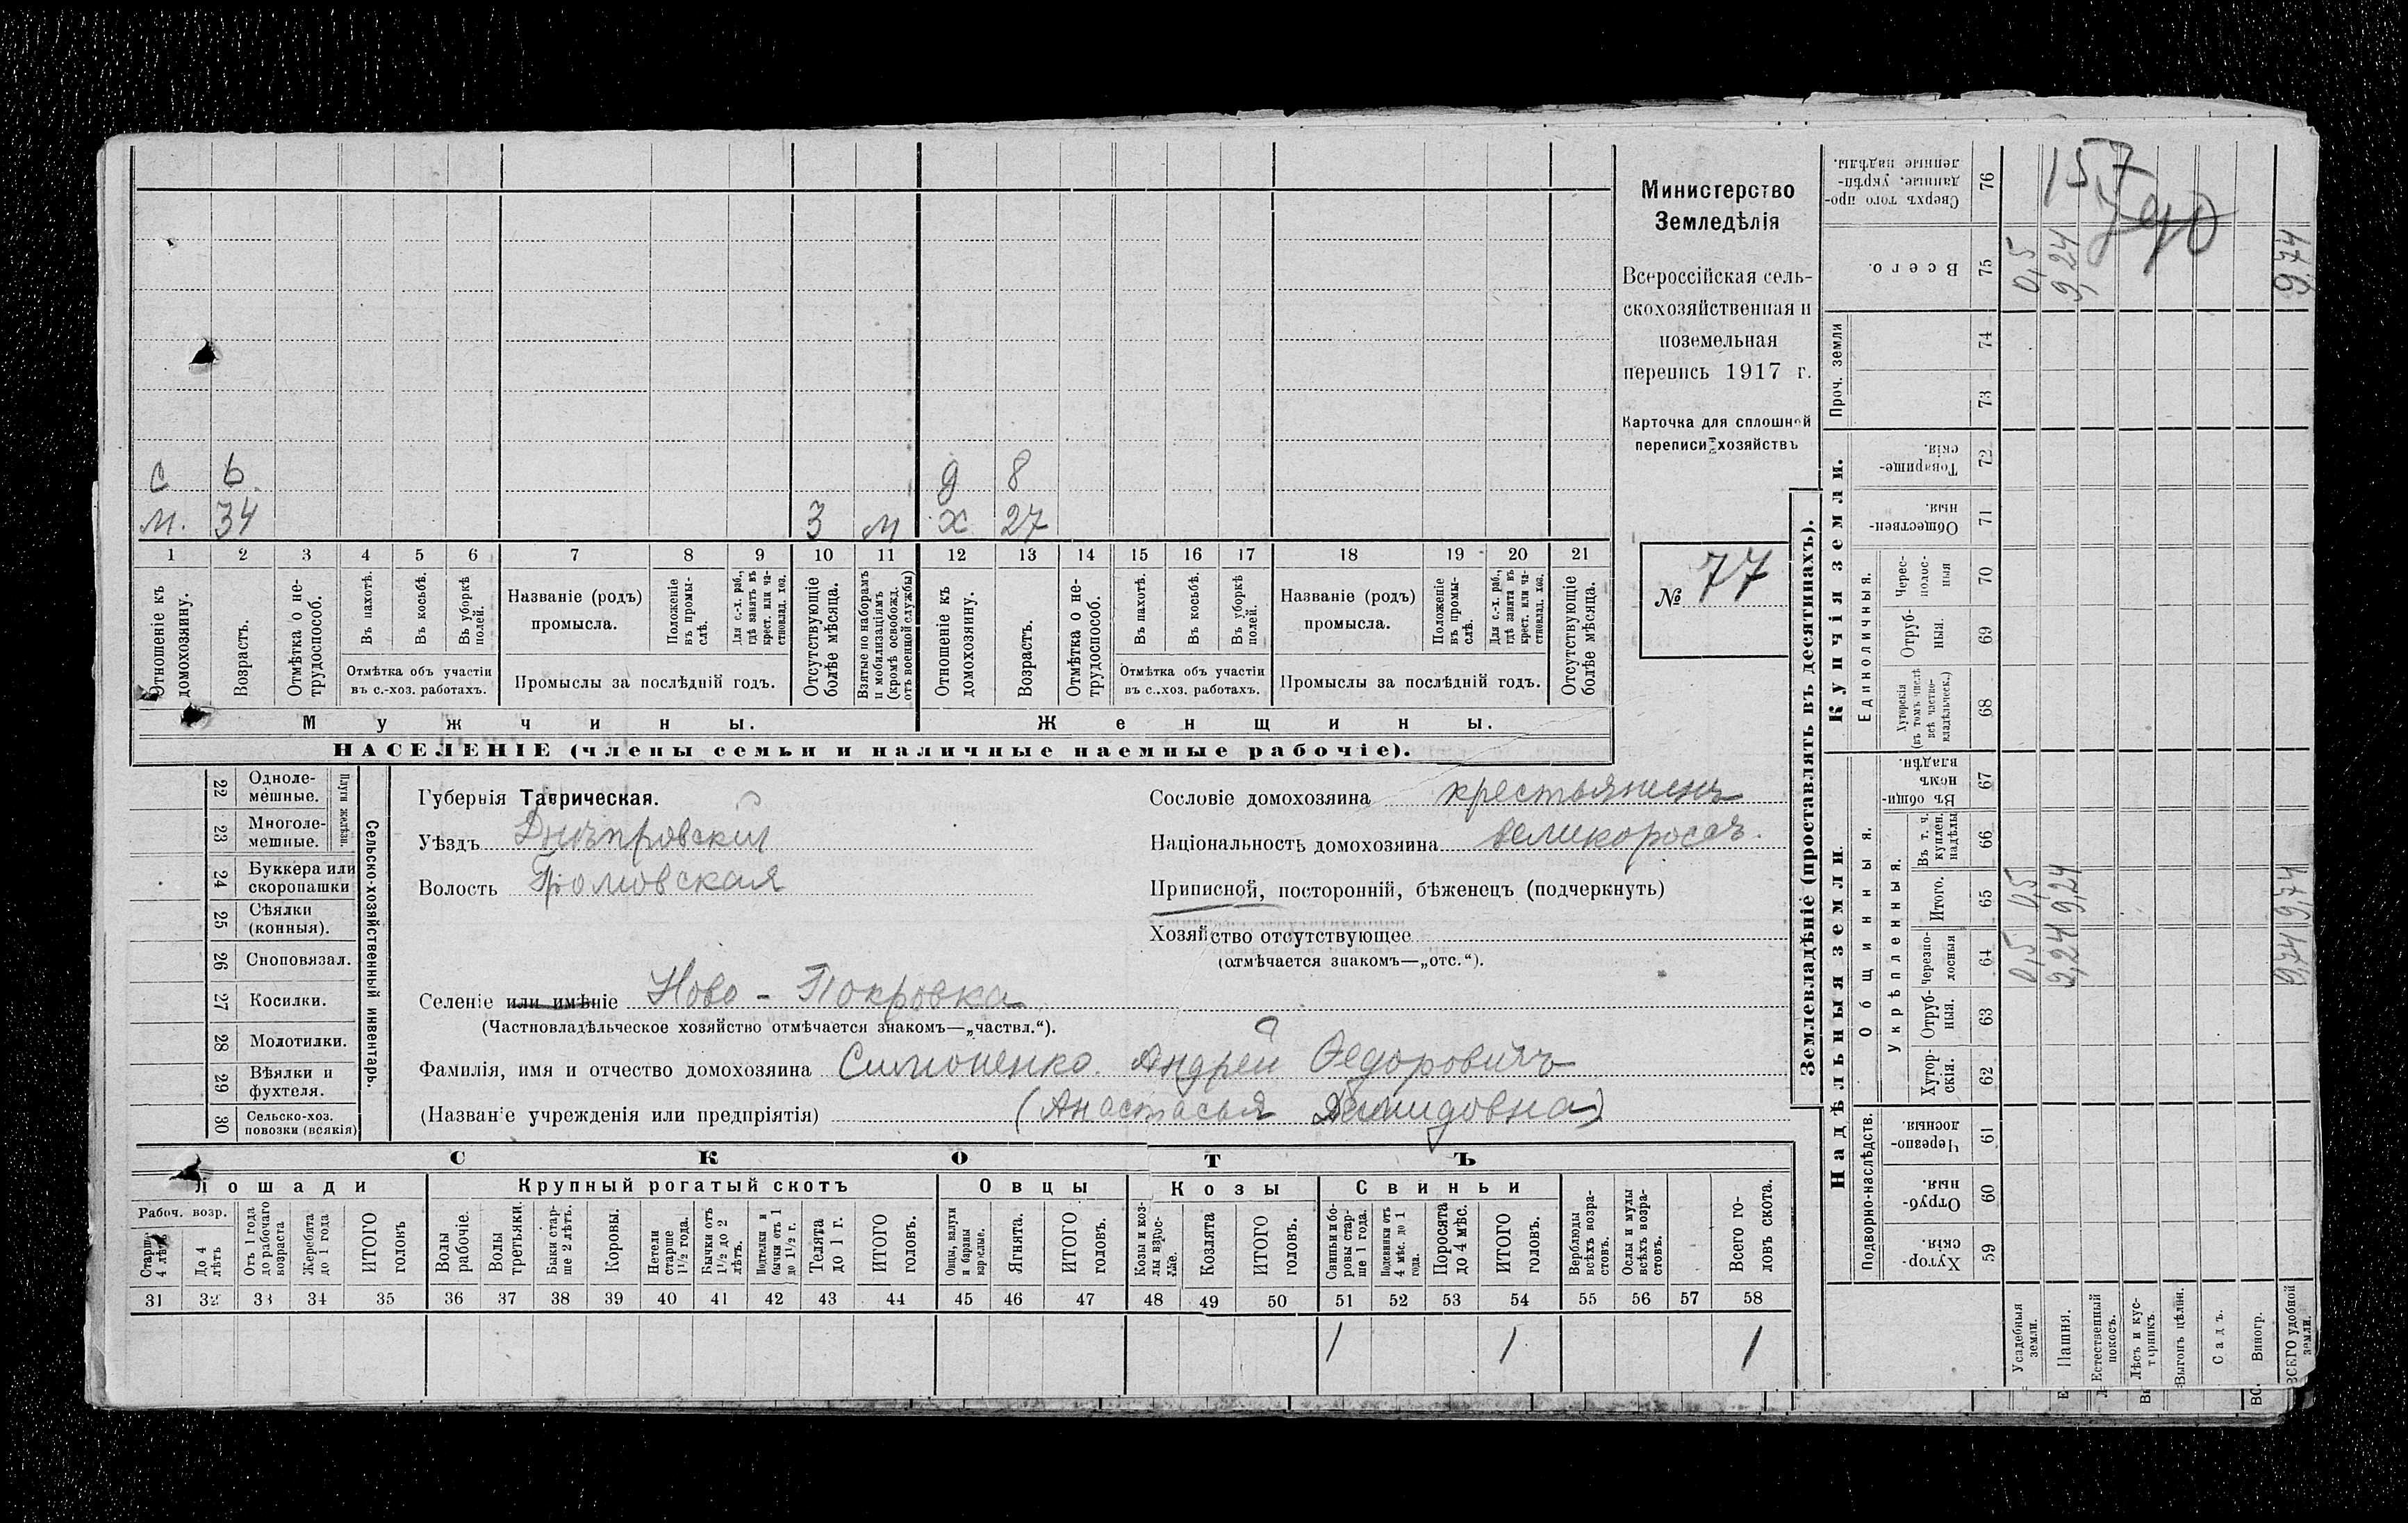 С 6 д 8
М. 34 3 м Х 27
1 2 3 4 5 6 7 8 9 10 11 12 13 14 15 16 17 18 19 20 21
Отношеніе къ домохозяину.
Возрастъ.
Отмѣтка о не-трудоспособ.
Въ пахотѣ.
Въ косьбѣ.
Въ уборкѣ полей.
Отмѣтка объ участіи
въ с.-хоз. работахъ.
Названіе (родъ)
промысла.
Положеніе въ промы-слѣ.
Для с.-х. раб., гдѣ занятъ въ крест. или ча-стновлад. хоз.
Промыслы за послѣдній годъ.
Отсутствующіе болѣе мѣсяца.
Взятые по наборамъ и мобилизаціямъ (кромѣ освобожд. отъ военной службы)
Отношеніе къ домохозяину.
Возрастъ.
Отмѣтка о не-трудоспособ.
Въ пахотѣ.
Въ косьбѣ.
Въ уборкѣ полей.
Отмѣтка объ участіи
въ с..хоз. работахъ.
Названіе (родъ)
промысла.
Положеніе въ промы-слѣ.
Для с.-х. раб., гдѣ занята въ крест. или ча-стновлад. хоз.
Промыслы за послѣдній годъ.
Отсутствующіе болѣе мѣсяца.
Мужчины.
Женщины.
НАСЕЛЕНІЕ (члены семьи и наличные наемные рабочіе).
Министерство
Земледѣлія
Всероссійская сель-
скохозяйственная и
поземельная
перепись 1917 г.
Карточка для сплошной
переписи хозяйствъ
№ 77
22 Одноле-мешные.
23 Многоле-мешные.
Плуги желѣзн.
24 Буккера или скоропашки
25 Сѣялки (конныя).
26 Сноповязал.
27 Косилки.
28 Молотилки.
29 Вѣялки и фухтеля.
30 Сельско-хоз. повозки (всякія)
Сельско-хозяйственный инвентарь.
Губернія Таврическая.
Уѣздъ Днѣпровский
Волость Громовская
Селеніе или имѣніе Ново - Покровка
(Частновладѣльческое хозяйство отмѣчается знакомъ—„частвл.“).
Фамилія, имя и отчество домохозяина Симоненко Андрей Федоровичъ
(Названіе учрежденія или предпріятія) (Анастасья Демидовна)
Сословіе домохозяина крестьянинъ
Національность домохозяина великороссъ.
Приписной, посторонній, бѣженецъ (подчеркнуть)
Хозяйство отсутствующее
(отмѣчается знакомъ—„отс.“).
СКОТЪ
Лошади
Рабоч. возр.
Старше 4 лѣтъ
До 4 лѣтъ
Отъ 1 года до рабочаго возраста
Жеребята до 1 года
ИТОГО головъ
Крупный рогатый скотъ
Волы рабочіе.
Волы третьяки.
Быки стар-ше 2 лѣтъ.
Коровы.
Нетели старше 1½ года.
Бычки отъ 1½ до 2 лѣтъ.
Подтелки и бычки отъ 1 до 1½ г.
Телята до 1 г.
ИТОГО головъ.
Овцы
Овцы, валухи и бараны взрослые.
Ягнята.
ИТОГО головъ.
Козы
Козы и коз-лы взрос-лые.
Козлята
ИТОГО головъ.
Свиньи
Свиньи и бо-ровы стар-ше 1 года.
Подсвинки отъ 4 мѣс. до 1 года.
Поросята до 4 мѣс.
ИТОГО головъ.
Верблюды всѣхъ возра-стовъ.
Ослы и мулы всѣхъ возра-стовъ.
Всего го-ловъ скота.
31 32 33 34 35 36 37 38 39 40 41 42 43 44 45 46 47 48 49 50 51 52 53 54 55 56 57 58
1 1 1
Землевладѣніе (проставлять въ десятинахъ).
Надѣльныя земли
Купчія земли.
Проч. земли
Подворно-наслѣдств.
Общинныя.
Укрѣпленныя.
Единоличныя.
Хутор-скія. 59
Отруб-ныя. 60
Черезпо-лосныя. 61
Хутор-скія. 62
Отруб-ныя. 63
Черезпо-лосныя 64
Итого. 65
Въ т. ч. куплен. надѣлы 66
Въ общи-номъ владѣн. 67
Хуторскія (въ томъ числѣ всѣ частно-владѣльческ.) 68
Отруб-ныя. 69
Черес-полос-ныя 70
Обществен-ныя. 71
Товарище-скія. 72
73
74
Всего. 75
Сверхъ того про-данные, укрѣп-ленные надѣлы. 76
Усадебныя земли. 0,5 0,5 0,5
Пашня. 9,24 9,24 9,24
Естественный покосъ.
Лѣсъ и кус-тарникъ.
Выгонъ цѣлин.
Садъ.
Виногр.
ВСЕГО удобной земли. 9,74 9,74 9,74
157